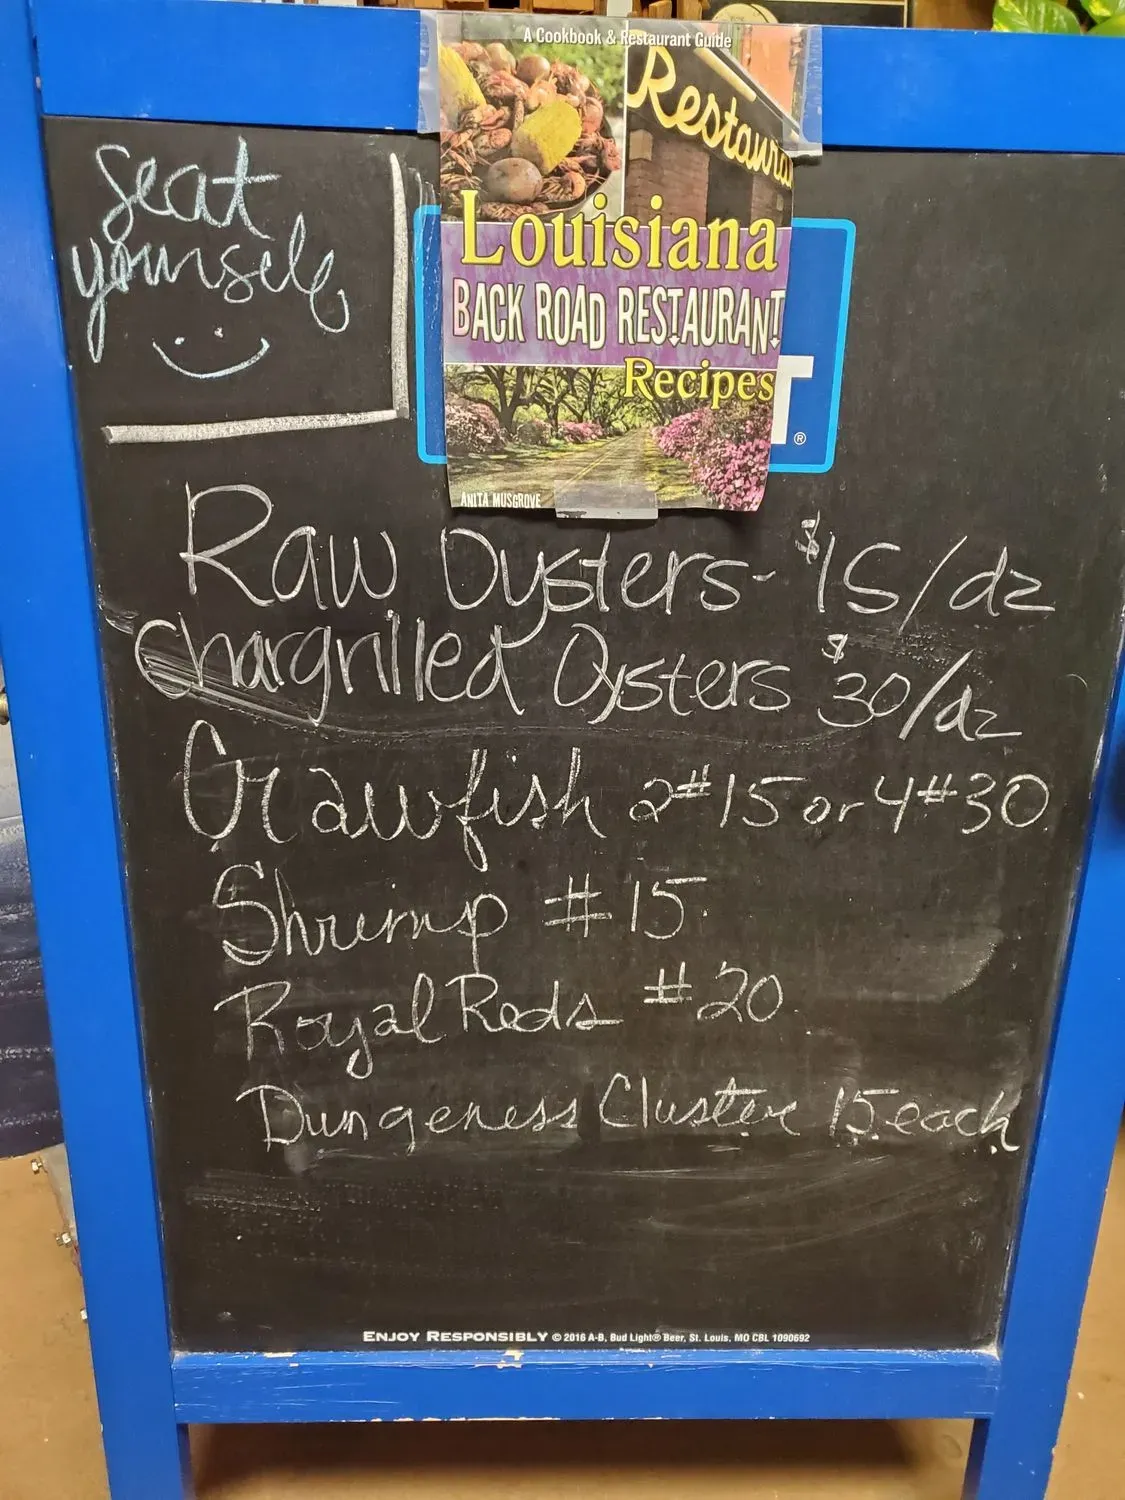 A Cookbook & Restaurant Guide
Restaura
Louisiana
BACK ROAD RESTAURANT
Recipes
ANITA MUSGROVE
T®
seat
yourself
Raw Oysters- $15/dz
Chargrilled Oysters $30/dz
Crawfish 2# 15 or 4# 30
Shrimp # 15
Royal Reds # 20
Dungeness Cluster 15 each
ENJOY RESPONSIBLY © 2016 A-B, Bud Light® Beer, St. Louis, MO CBL 1090692